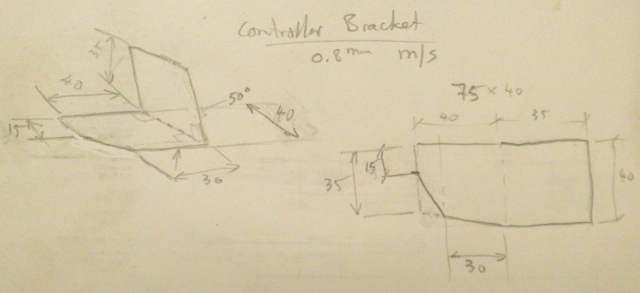 Controller Bracket
0.8mm m/s
40
15
50°
40
30
75 × 40
40 35
35
15
40
30